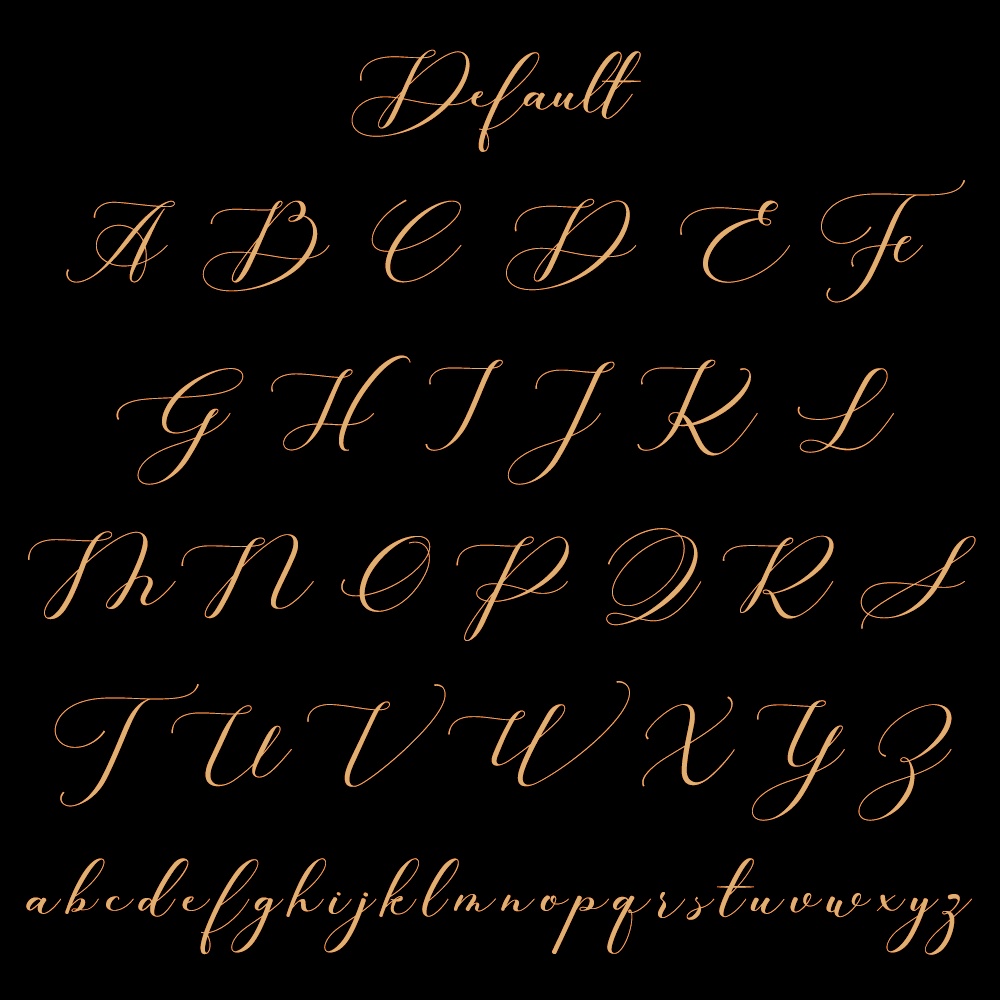 Default
A B C D E Fe
G H I J K L
M N O P Q R S
T U V W X Y Z
a b c d e f g h i j k l m n o p q r s t u v w x y z